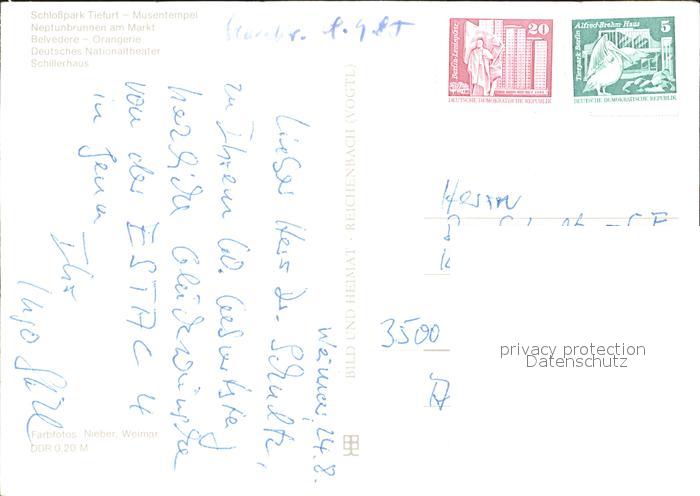 Schloßpark Tiefurt – Musentempel
Neptunbrunnen am Markt
Belvedere – Orangerie
Deutsches Nationaltheater
Schillerhaus
Berlin-Leninplatz
20
DEUTSCHE DEMOKRATISCHE REPUBLIK
Tierpark Berlin
Alfred-Brehm-Haus
5
DEUTSCHE DEMOKRATISCHE REPUBLIK
Weimar, 24.8.
Lieber Herr Dr. Schulte,
zu Ihrem 60. Geburtstag
herzliche Glückwünsche
von der ESTAC 4
in Jena
Ihr
Ingo
BILD UND HEIMAT · REICHENBACH (VOGTL)
Herrn
3500
privacy protection
Datenschutz
Farbfotos: Nieber, Weimar
DDR 0,20 M